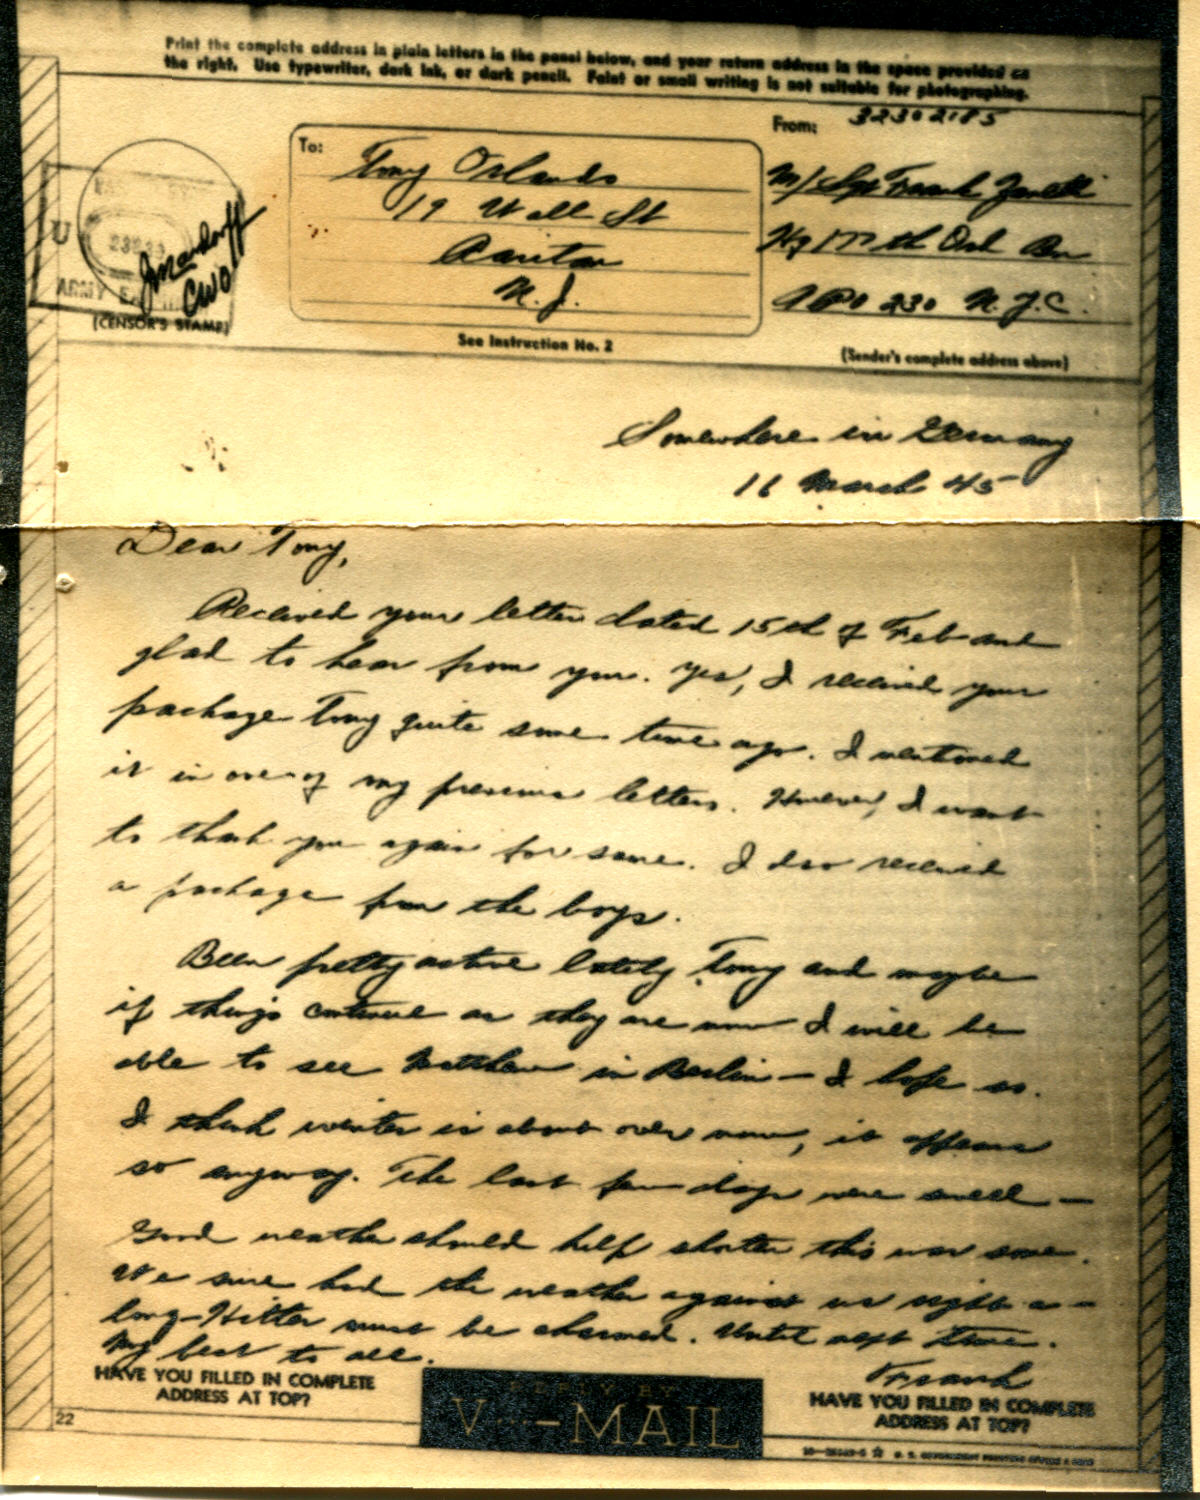 Print the complete address in plain letters in the panel below, and your return address in the space provided on
the right. Use typewriter, dark ink, or dark pencil. Faint or small writing is not suitable for photographing.
From: 32302185
To: Tony Orlando
19 Wall St
Raritan
N. J.
M/Sgt Frank
Hq th Ord Bn
APO 230 N.Y.C.
U
ARMY
CWO
(CENSOR'S STAMP)
See Instruction No. 2
(Sender's complete address above)
Somewhere in Germany
16 March 45
Dear Tony,
Received your letter dated 15th of Feb and
glad to hear from you. Yes, I received your
package Tony quite some time ago. I mentioned
it in one of my previous letters. However, I want
to thank you again for same. I also received
a package from the boys.
Been pretty active lately Tony and maybe
if things continue as they are now I will be
able to see Matthew in Berlin — I hope so.
I think winter is about over now, it appears
so anyway. The last few days were swell —
Good weather should help shorten this war some.
We sure had the weather against us right a -
long - Hitler must be charmed. Until next time.
My best to all.
Frank
HAVE YOU FILLED IN COMPLETE
ADDRESS AT TOP?
REPLY BY
V···—MAIL
HAVE YOU FILLED IN COMPLETE
ADDRESS AT TOP?
22